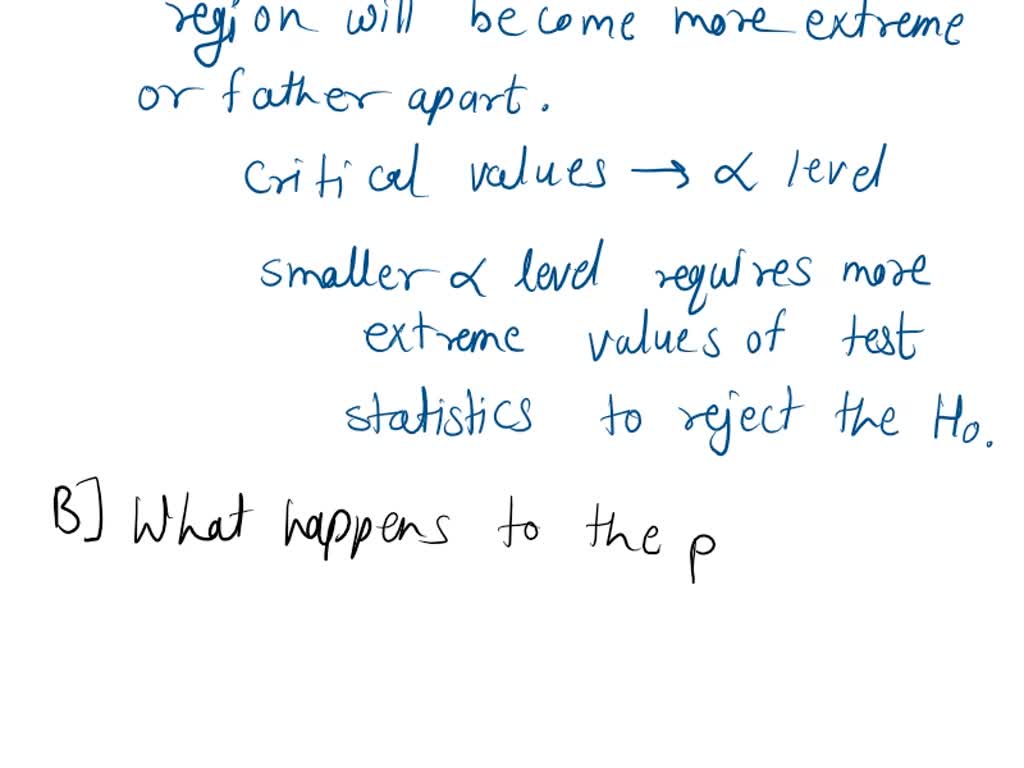 region will become more extreme
or father apart.
critical values → ∝ level
smaller ∝ level requires more
extreme values of test
statistics to reject the H₀.
B] What happens to the p